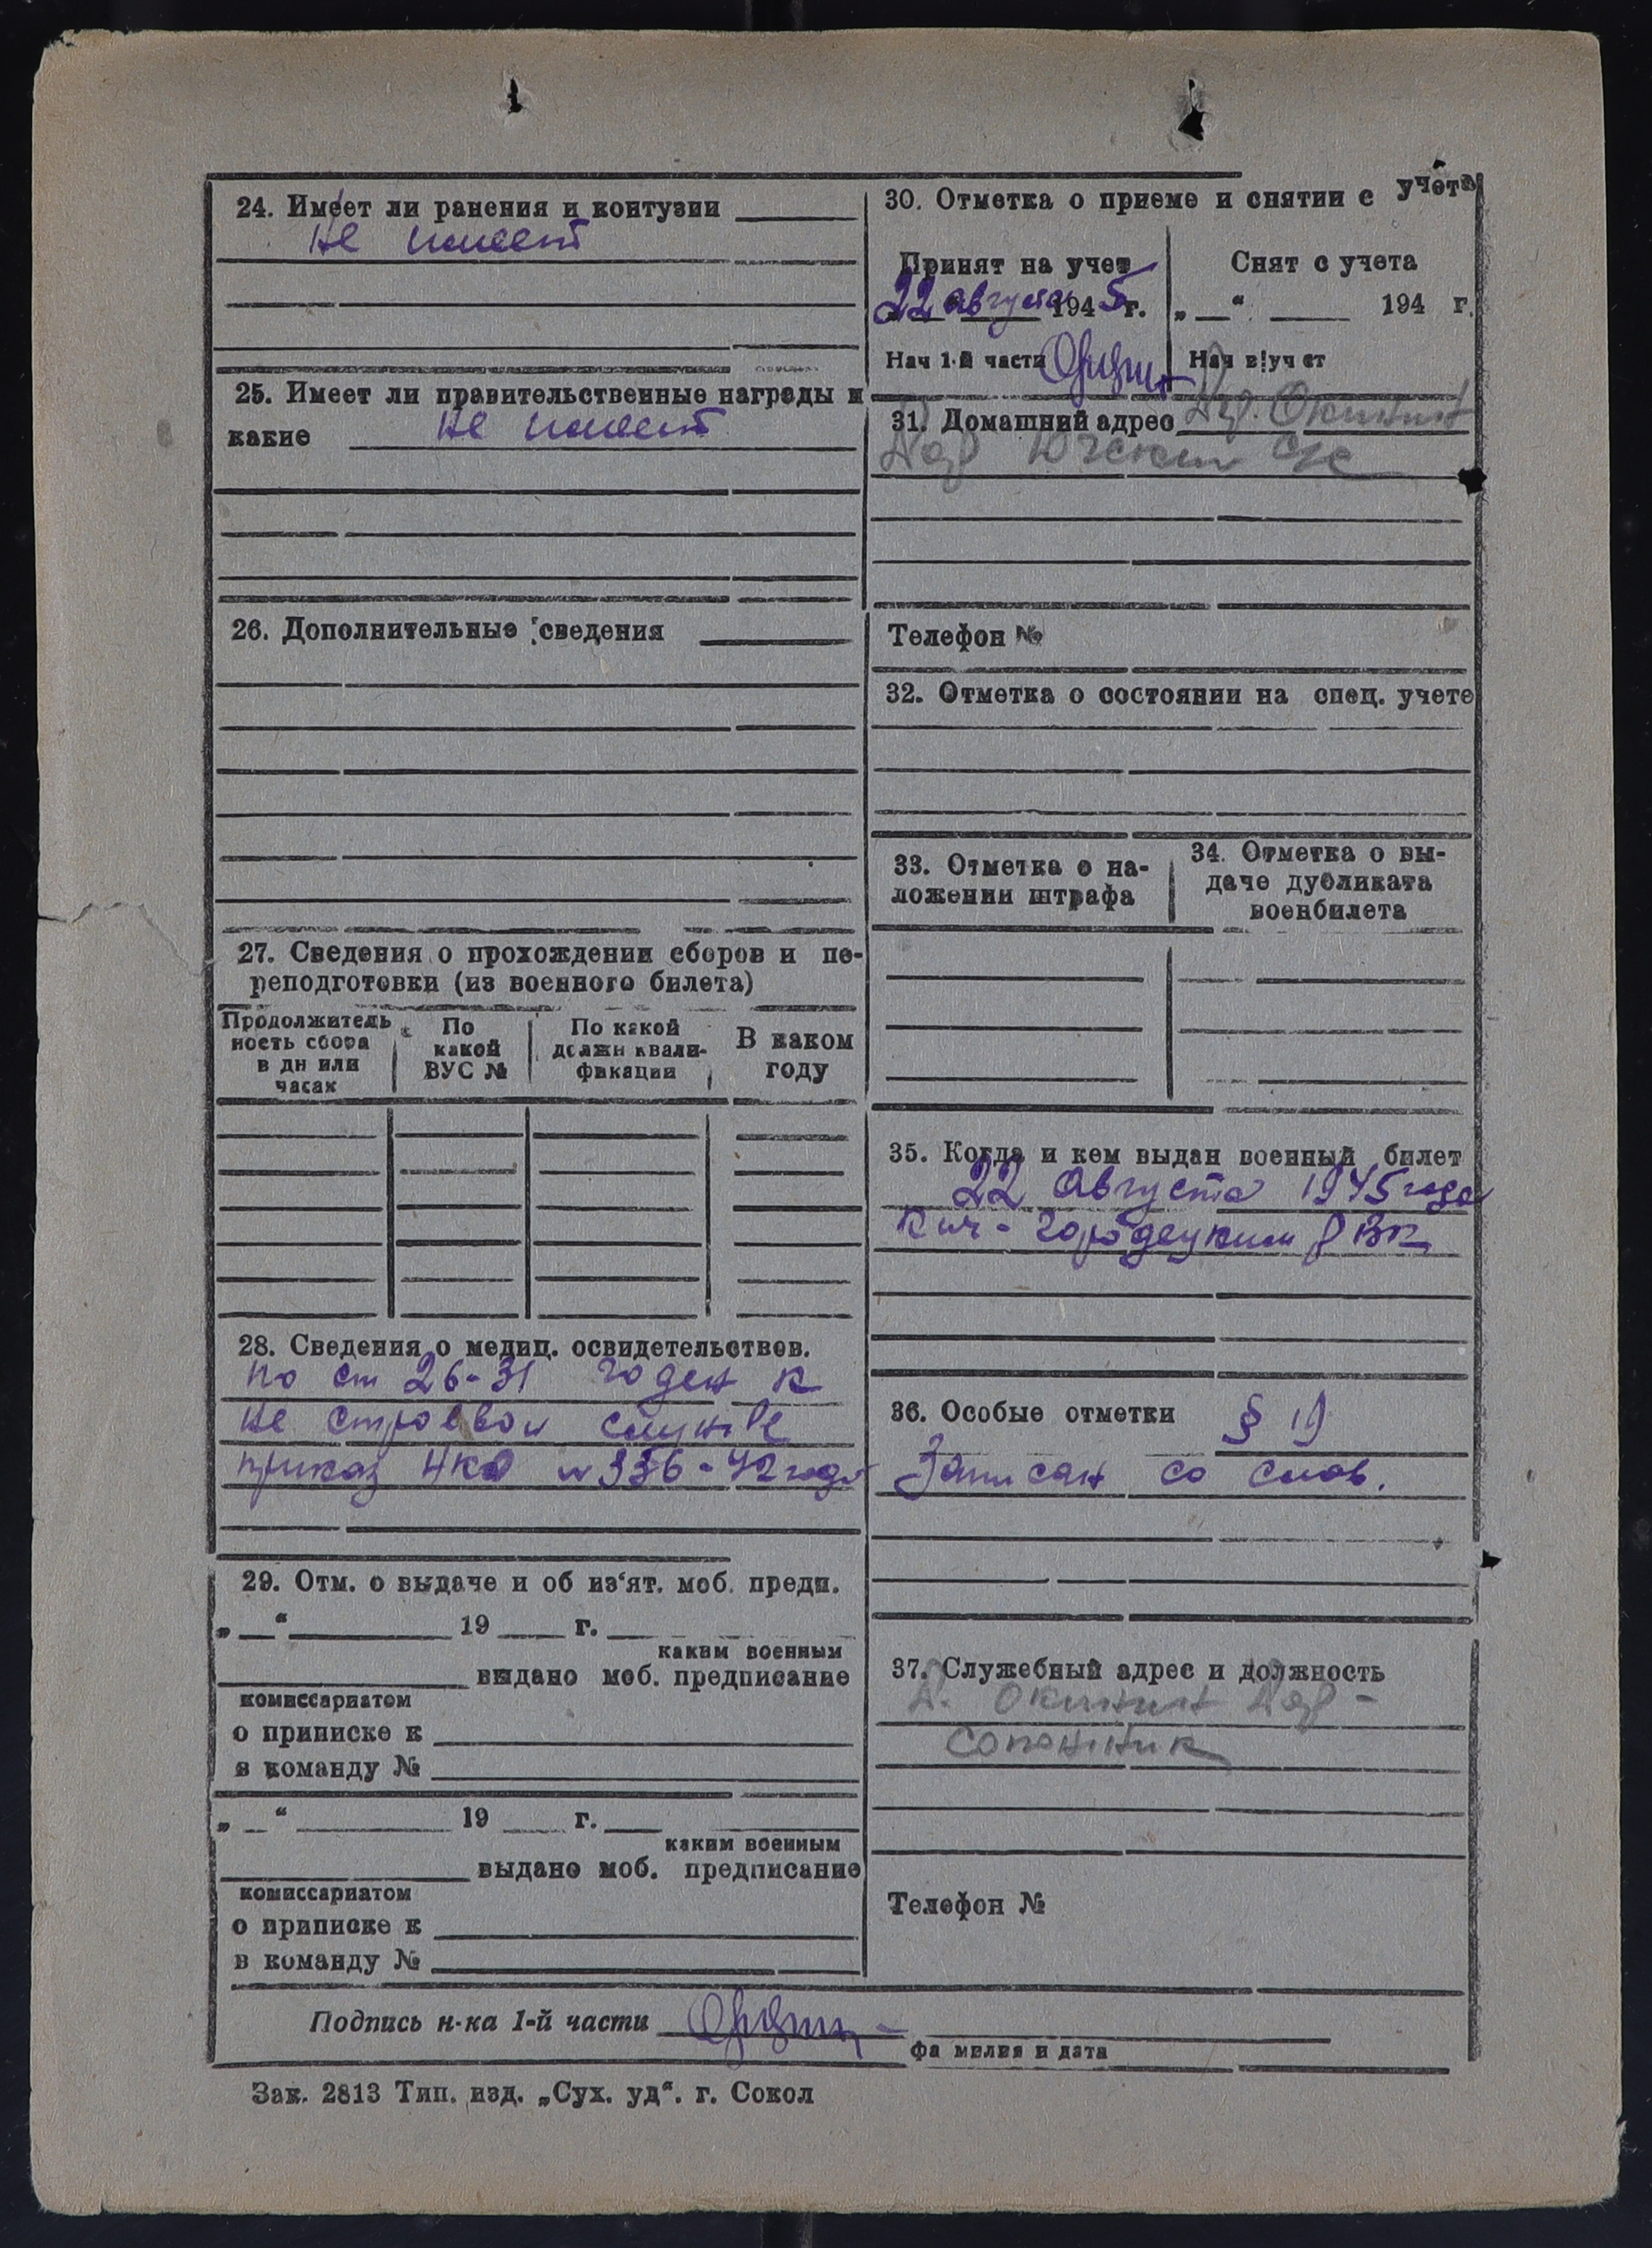 24. Имеет ли ранения и контузии
не имеет
25. Имеет ли правительственные награды и
какие не имеет
26. Дополнительные сведения
27. Сведения о прохождении сборов и пе-
реподготовки (из военного билета)
Продолжитель
ность сбора
в дн или
часах
По
какой
ВУС №
По какой
должн квали-
фикации
В каком
году
28. Сведения о медиц. освидетельствов.
по ст 26-31 годен к
не строевой службе
приказ НКО № 336-42 года
29. Отм. о выдаче и об из‘ят. моб. предп.
„ “ 19 г.
каким военным
выдано моб. предписание
комиссариатом
о приписке к
в команду №
„ “ 19 г.
каким военным
выдано моб. предписание
комиссариатом
о приписке к
в команду №
30. Отметка о приеме и снятии с учёта
Принят на учет
22 августа 1945 г.
Нач 1-й части
Снят с учета
„ “ 194 г.
Нач в|уч ст
31. Домашний адрес
Телефон №
32. Отметка о состоянии на спец. учете
33. Отметка о на-
ложении штрафа
34. Отметка о вы-
даче дубликата
военбилета
35. Когда и кем выдан военный билет
22 Августа 1945 года
Кич-Городецким РВК
36. Особые отметки § 19
Записан со слов.
37. Служебный адрес и должность
Телефон №
Подпись н-ка 1-й части
фа милия и дата
Зак. 2813 Тип. изд. „Сух. уд“. г. Сокол